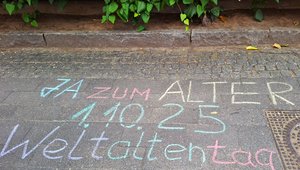 JA ZUM ALTER
1.10.25
Weltaltentag